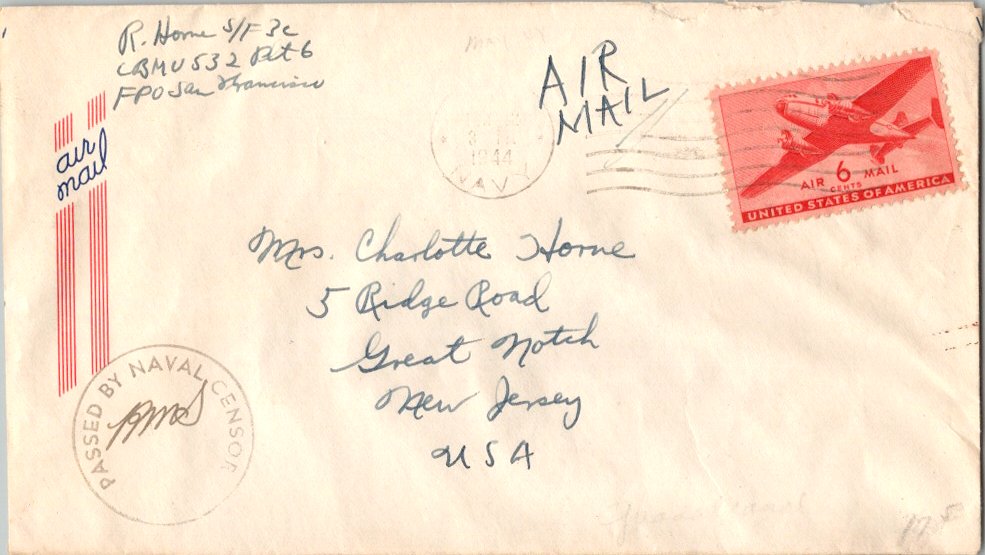 R. Horne S/F 3c
CBMU 532 Det 6
FPO San Francisco
air
mail
AIR
MAIL
1944
NAVY
AIR 6 MAIL
CENTS
UNITED STATES OF AMERICA
Mrs. Charlotte Horne
5 Ridge Road
Great Notch
New Jersey
USA
PASSED BY NAVAL CENSOR